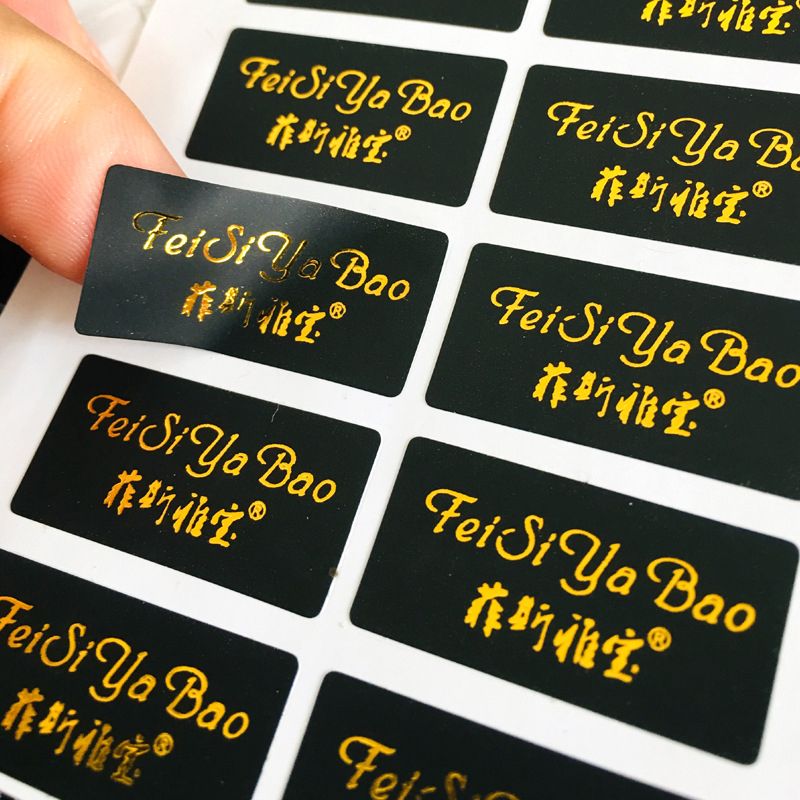 菲斯雅宝
FeiSiYa Bao
菲斯雅宝®
FeiSiYa Ba
菲斯雅宝®
FeiSiYa Bao
菲斯雅宝®
FeiSiYa Bao
菲斯雅宝®
FeiSiYa Bao
菲斯雅宝®
FeiSiYa Bao
菲斯雅宝®
FeiSiYa Bao
菲斯雅宝®
FeiSiYa